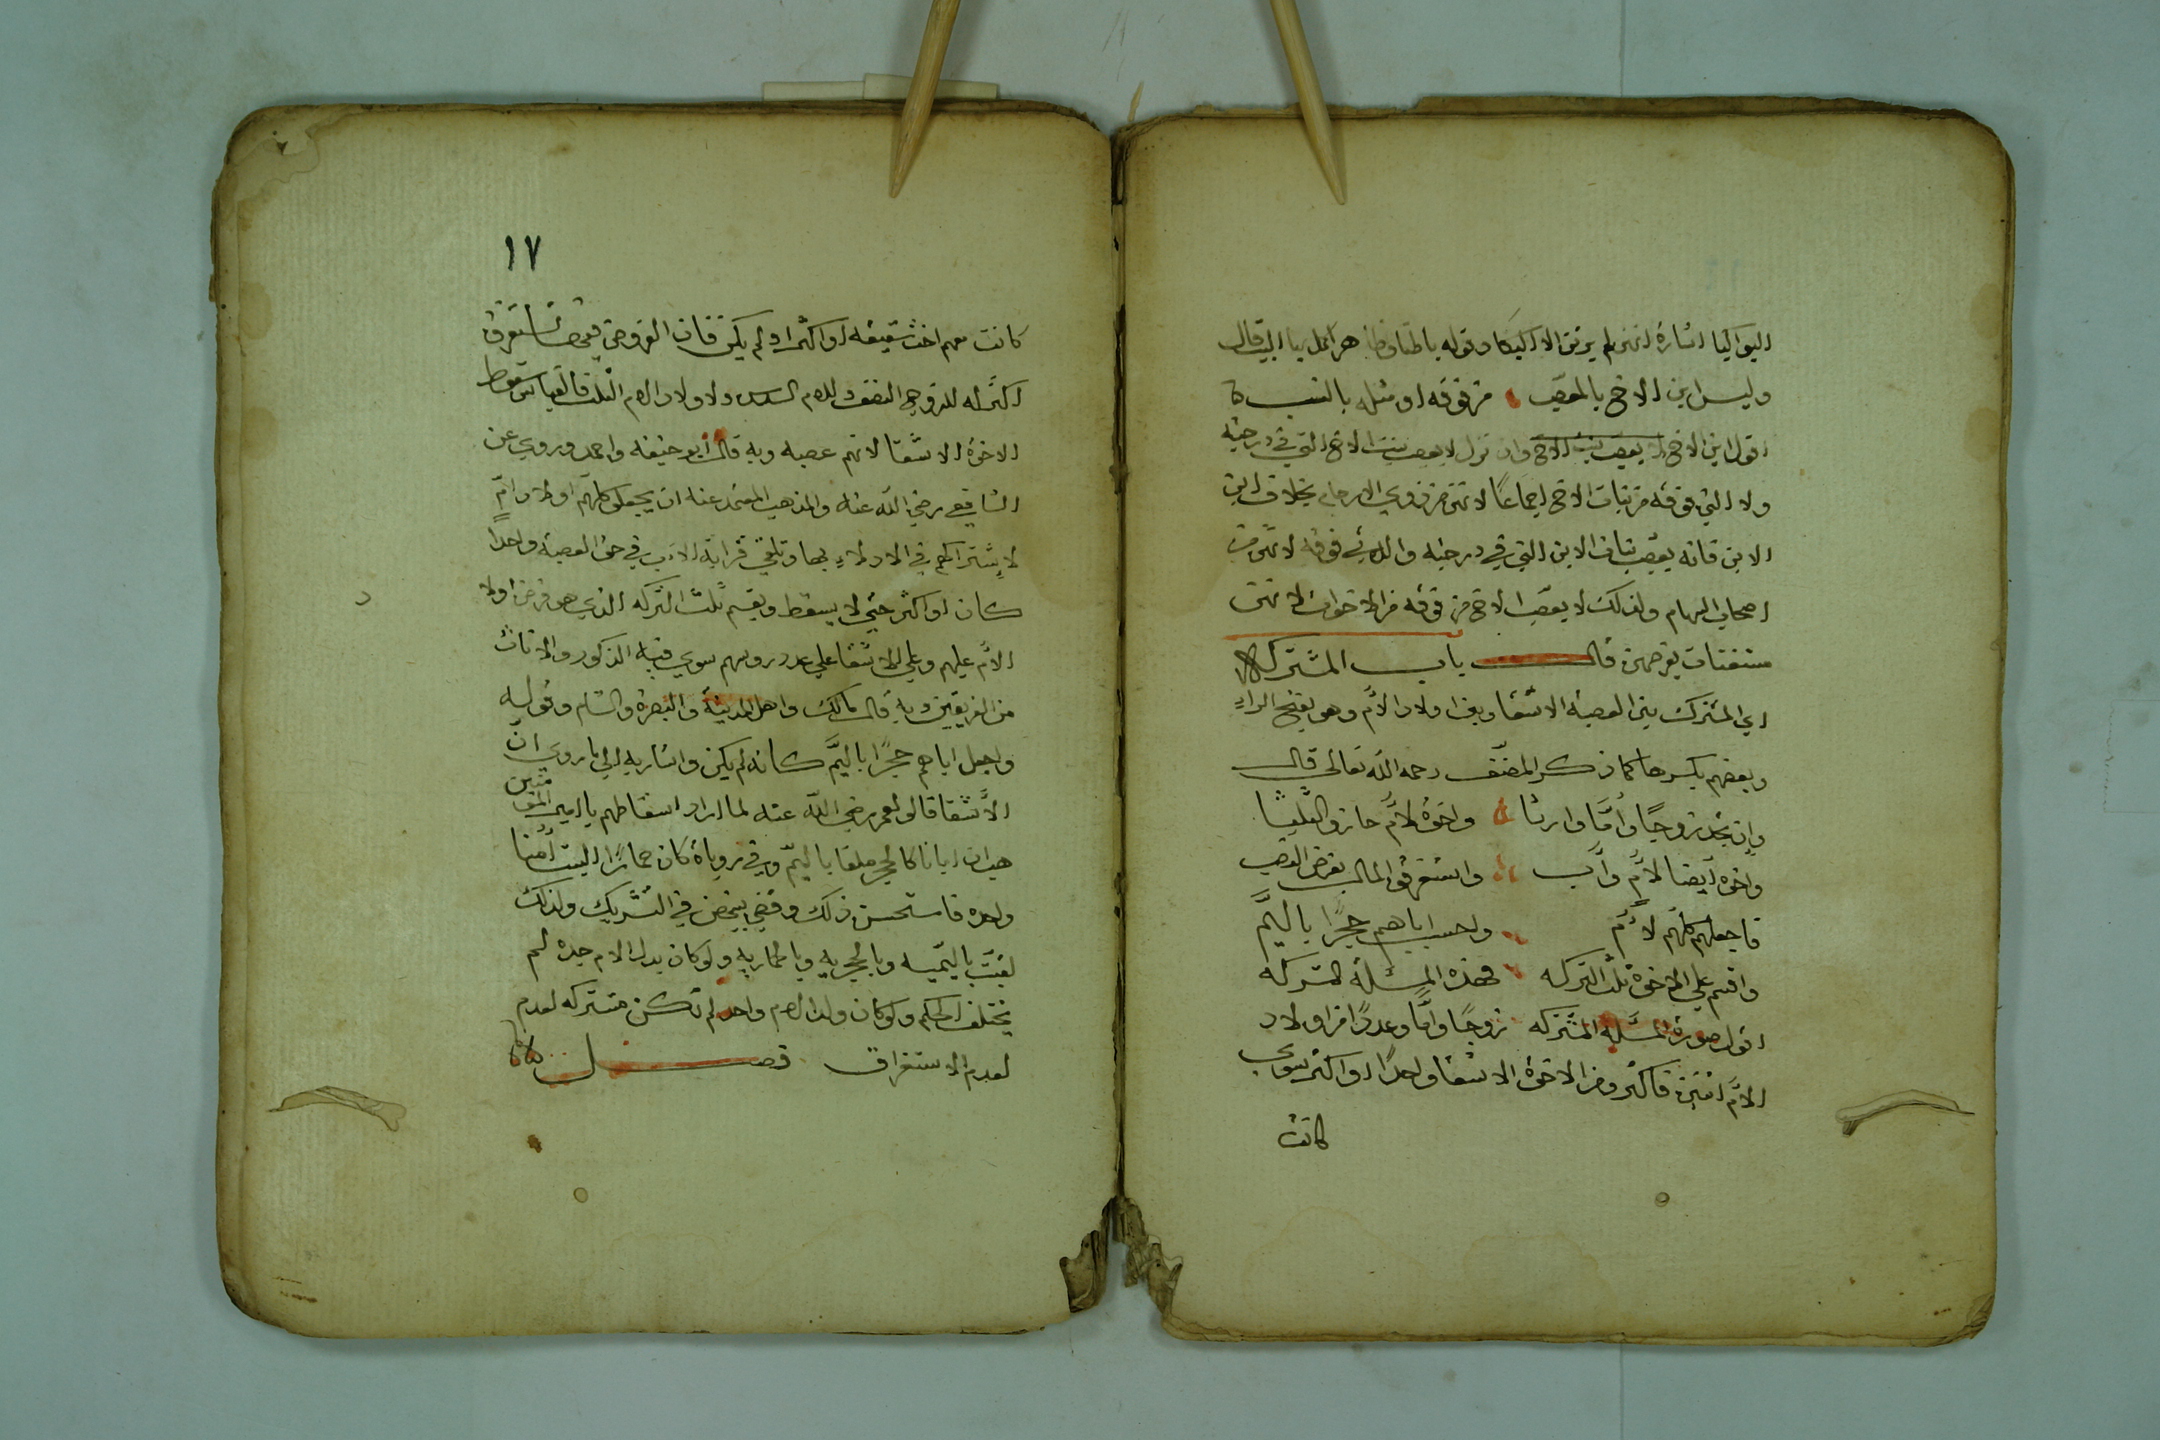 البواكيا اشارة انهن لم يرثن الا كيكا وقوله باطنا وظاهر اكمل بها البيت قال
وليس ابن الاخ بالمعصب من فوقه او مثله بالنسب
اقول ابن الاخ لا يعصب بنت الاخ وان نزل لا يعصب بنت الاخ التي في درجته
ولا التي فوقه من بنات الاخ اجماعا لانهن من ذوي الارحام بخلاف ابن
الابن فانه يعصب بنات الابن التي في درجته واللائي فوقه لانهن من
اصحاب السهام ولذلك لا يعصب ابن الاخ من فوقه من الاخوات لانهن
مستغنات بفرضهن قال باب المشتركة
اي المشترك بين العصبة الاشقا وبين اولاد الام وهو بفتح الراء
وبعضهم يكسرها كما ذكر المصنف رحمه الله تعالى قال
وان تجد زوجا واما وارثا واخوة لام حازوا الثلثا
واخوة ايضا لام واب واستغرقوا المال بفرض النصب
فاجعلهم كلهم لام واحسب اباهم حجرا باليم
واقسم على الاخوة ثلث التركه فهذه المسئلة المشتركه
اقول صورة المسئلة المشتركه زوجا واما وعددا من اولاد
الام اثنين فاكثر ومن الاخوة الاشقا واحدا او اكثر سوى
كانت
١٧
كانت معهم اخت شقيقه او اكثر او لم يكن فان الفروض فيها تستغرق
التركه للزوج النصف وللام السدس ولاولاد الام الثلث فالقياس سقوط
الاخوة الاشقا لانهم عصبه وبه قال ابو حنيفه واحمد وروي عن
الشافعي رضي الله عنه والمذهب المعتمد عنه ان يجعل كلهم اولاد ام
لاشتراكهم في الادلاء بها وتلغى قرابة الاب في حق العصبة واحدا
كان او اكثر حتى لا يسقط ويقسم ثلث التركه الذي هو فرض اولاد
الام عليهم وعلى الاشقا على عدد روسهم سوى فيه الذكور والاناث
من الفريقين وبه قال مالك واهل المدينة والبصرة والشام وقوله
واجعل اباهم حجرا باليم كانه لم يكن واشار به الى ما روي ان
الاشقا قالو لعمر رضي الله عنه لما اراد اسقاطهم يا امير المومنين
هب ان ابانا كالحجر ملقا باليم وفي رواية كان حمارا اليست امنا
واحده فاستحسن ذلك وقضى بينهم في التشريك ولذلك
لقبت باليمية وبالحجريه وبالحماريه ولو كان بدل الام جده لم
يختلف الحكم ولو كان ولد الام واحد لم تكن مشتركه لعدم
لعدم الاستغراق فصل